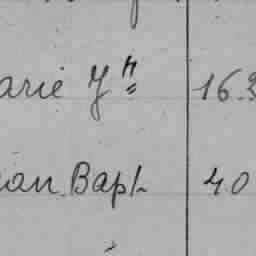 arie Jh 163
ean Bapt 40